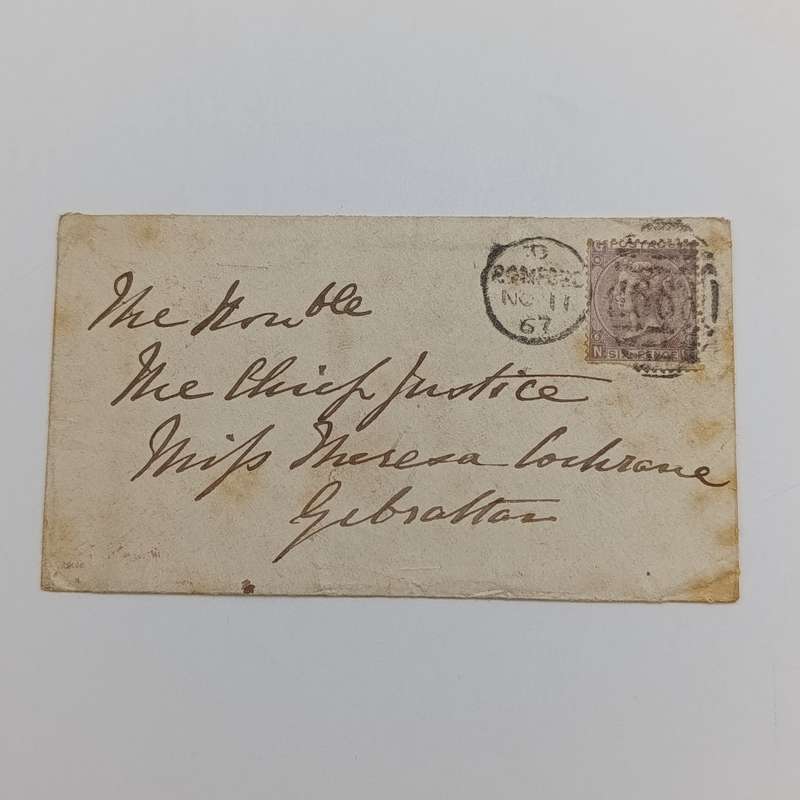 The Honble
The Chief Justice
Miss Theresa Cochrane
Gibraltar
D
ROMFORD
NO 11
67
POSTAGE
N SIX PENCE